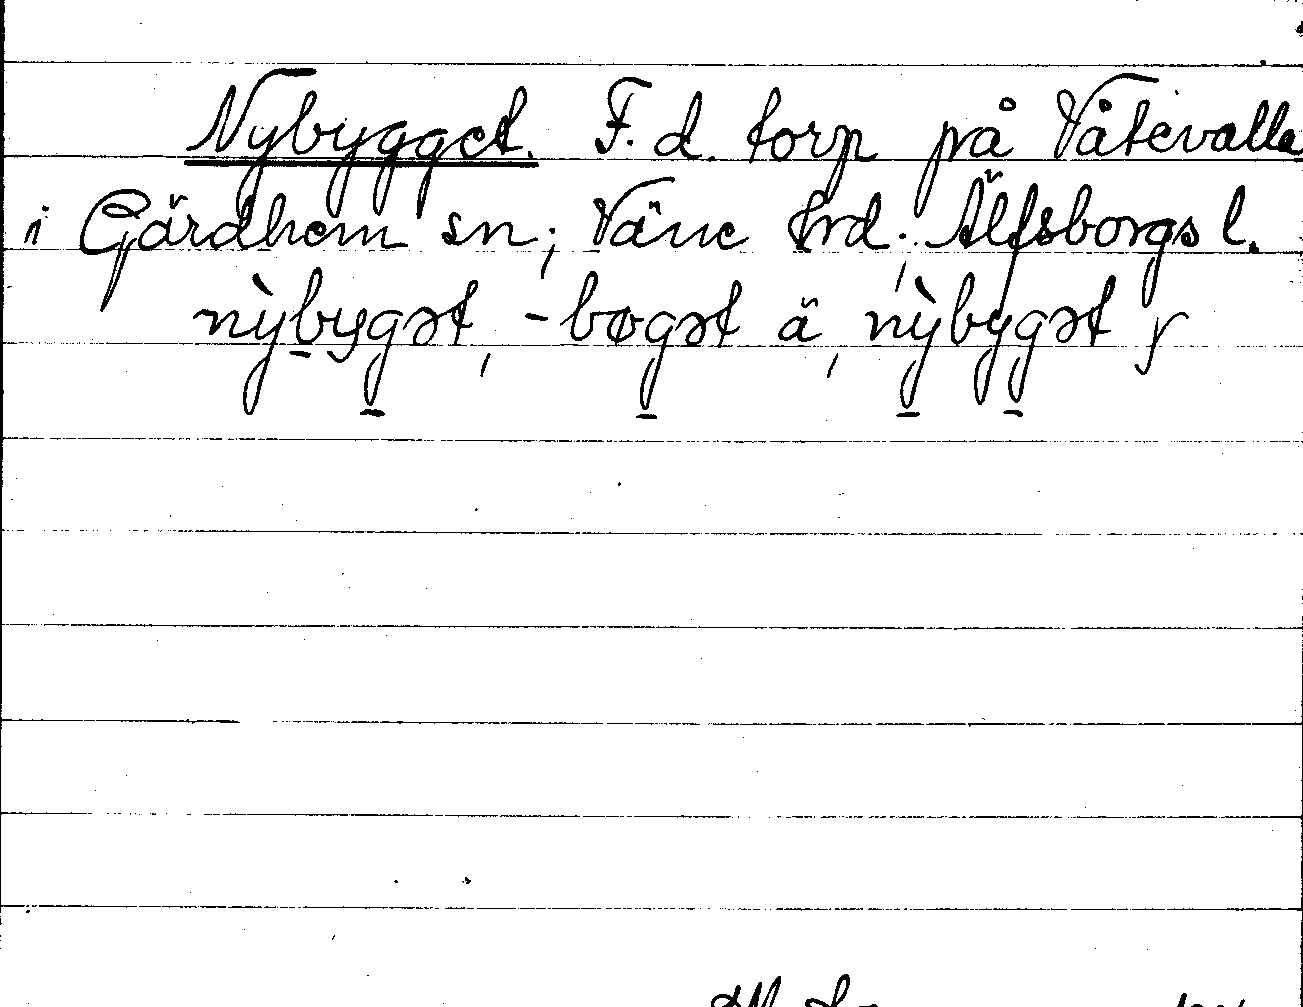 Nybygget. F.d. torp på Våtevalla
i Gärdhem sn; Väne hrd; Älfsborgs l.
nỳbygət, -bøgət ä, nỳbygət y